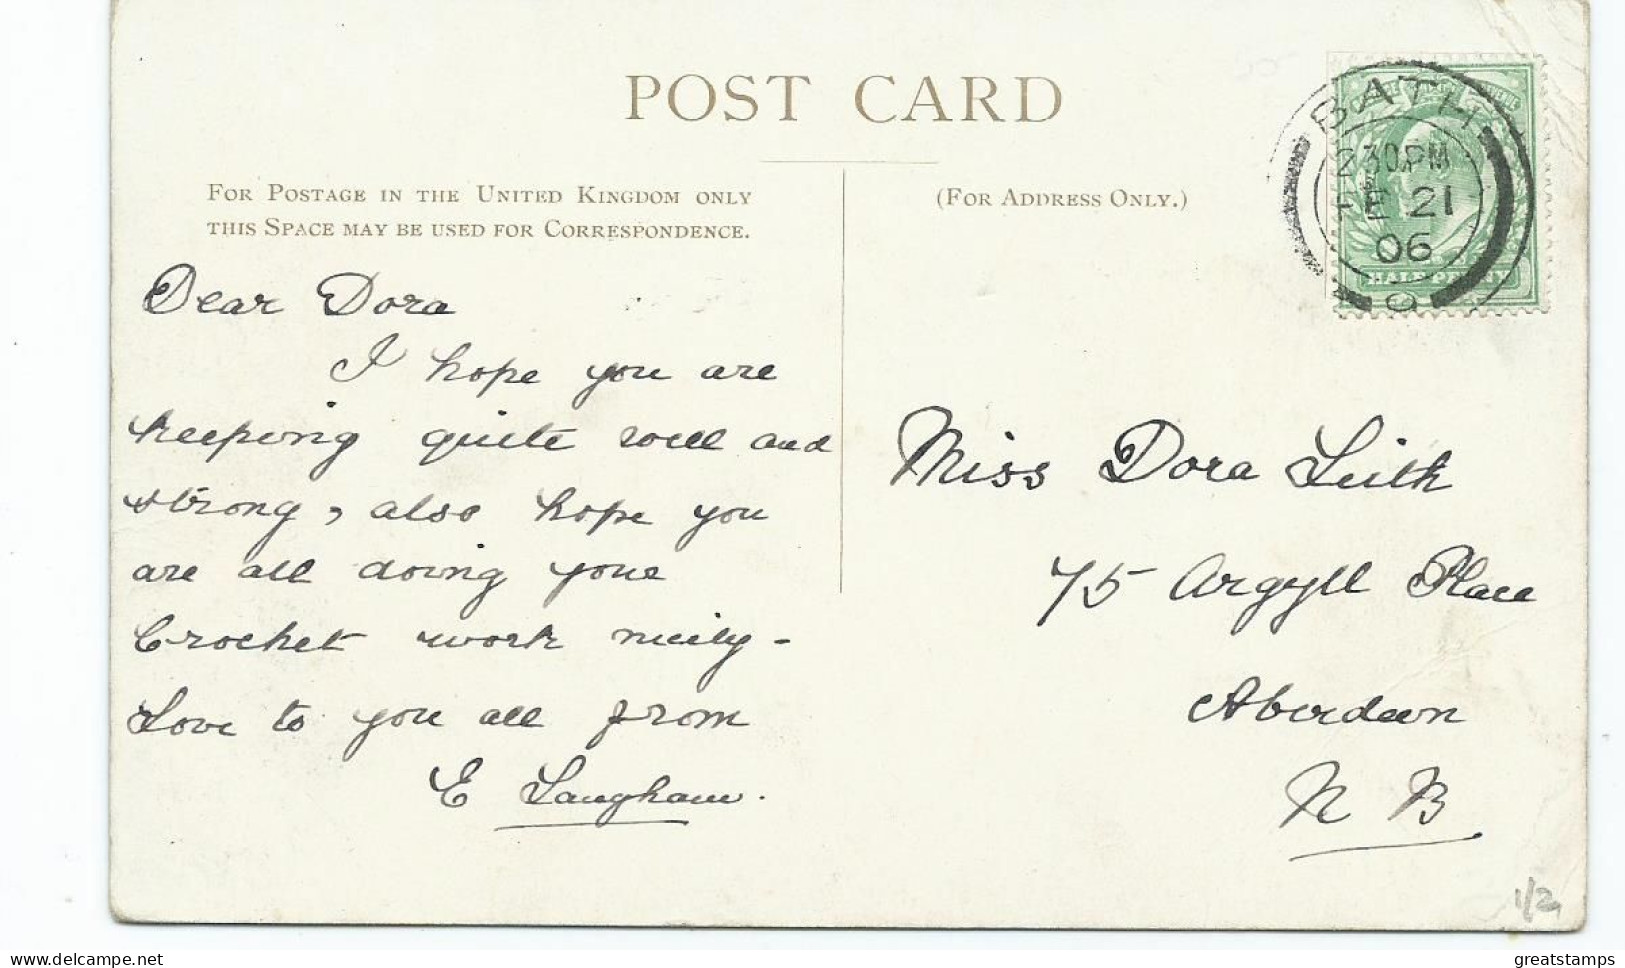 POST CARD
FOR POSTAGE IN THE UNITED KINGDOM ONLY
THIS SPACE MAY BE USED FOR CORRESPONDENCE.
(FOR ADDRESS ONLY.)
BATH
30PM
21
06
HALFPENNY
Dear Dora
I hope you are
keeping quite well and
strong, also hope you
are all doing your
Crochet work nicely -
Love to you all from
E Langham.
Miss Dora Leith
75 Argyll Place
Aberdeen
N B
1/2
delcampe.net
greatstamps